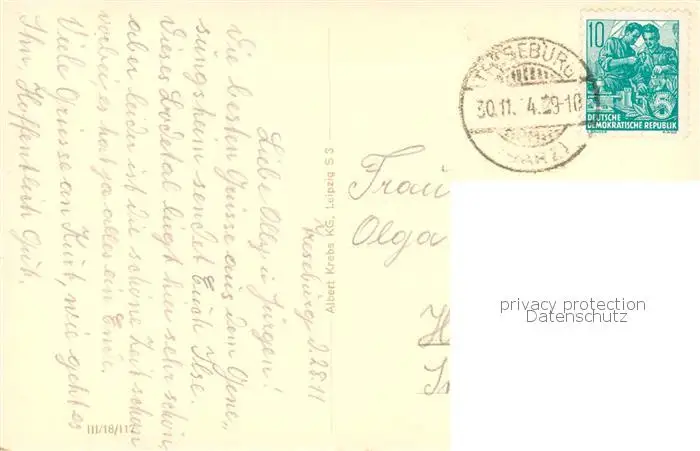 Treseburg, d. 28.11
Liebe Olly u. Jürgen!
Die besten Grüsse aus dem Gene„
sungsheim sendet Euch Ilse.
Dieses Bodetal liegt hier sehr schön,
aber leider ist die schöne Zeit schon
vorbei es hat ja alles ein Ende.
Viele Grüsse an Kurt, wie geht es
Ihm Hoffentlich Gut.
III/18/117
Albert Krebs KG, Leipzig S 3
TRESEBURG
30.11. 4.29-10
(HARZ)
10
5
DEUTSCHE
DEMOKRATISCHE REPUBLIK
Frau
Olga
H
privacy protection
Datenschutz